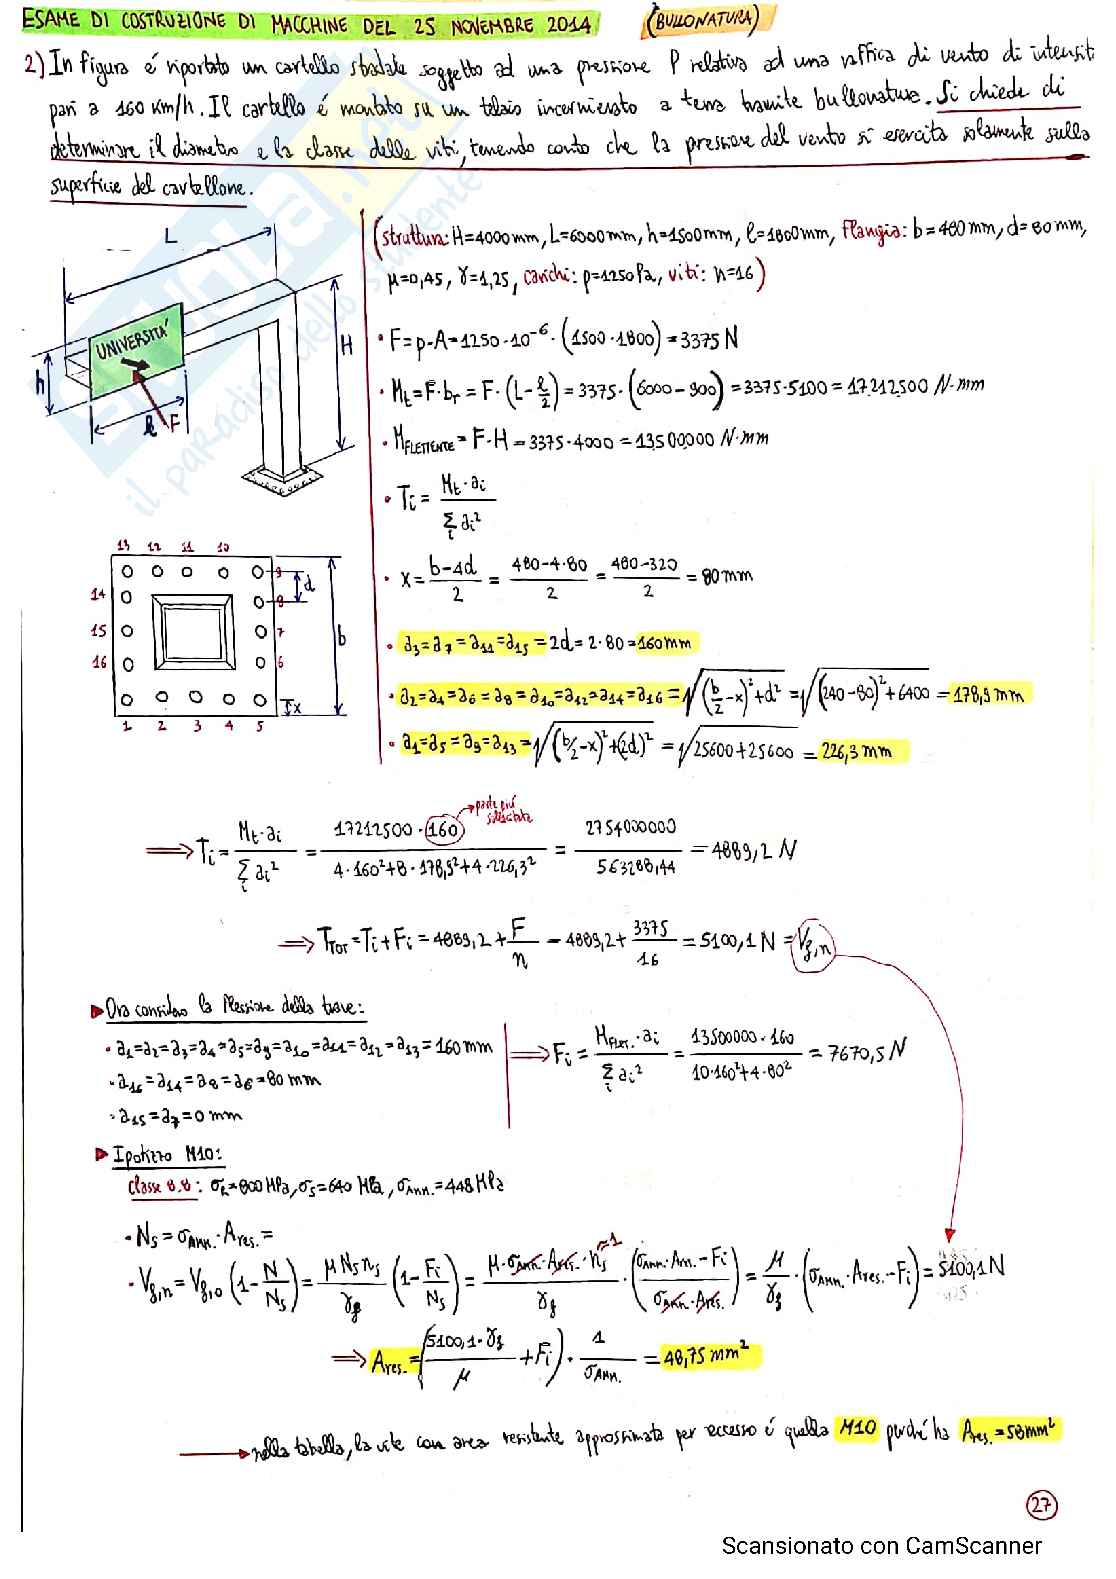 ESAME DI COSTRUZIONE DI MACCHINE DEL 25 NOVEMBRE 2014 (BULLONATURA)
2) In figura é riportato un cartello stradale soggetto ad una pressione P relativa ad una raffica di vento di intensit
pari a 160 Km/h. Il cartello é montato su un telaio incernierato a terra tramite bullonature. Si chiede di
determinare il diametro e la classe delle viti, tenendo conto che la pressione del vento si esercita solamente sulla
superficie del cartellone.
(struttura: H=4000mm, L=6000mm, h=1500mm, ℓ=1800mm, flangia: b=480mm, d=80mm,
μ=0,45, γ=1,25, carichi: p=1250Pa, viti: n=16)
L
H
h
UNIVERSITÁ
ℓ
F
• F=p·A=1250·10⁻⁶·(1500·1800)=3375 N
• Mt=F·br=F·(L-ℓ/2)=3375·(6000-900)=3375·5100=17212500 N·mm
• MFLETTENTE=F·H=3375·4000=13500000 N·mm
• Ti = Mt·ai / Σi ai²
• x = (b-4d)/2 = (480-4·80)/2 = (480-320)/2 = 80mm
• a3=a7=a11=a15=2d=2·80=160mm
• a2=a4=a6=a8=a10=a12=a14=a16=√((b/2-x)²+d²)=√((240-80)²+6400)=178,9mm
• a1=a5=a9=a13=√((b/2-x)²+(2d)²)=√(25600+25600)=226,3mm
13 12 11 10
9
d
8
14
15 7 b
16 6
x
1 2 3 4 5
⟹ Ti = Mt·ai / Σi ai² = 17212500·160 / (4·160²+8·178,9²+4·226,3²) = 2754000000 / 563288,44 = 4889,2 N
parte più sollecitata
⟹ TTOT=Ti+Fi=4889,2+F/n=4889,2+3375/16=5100,1N=Vf,n
▶ Ora considero la flessione della trave:
• a1=a2=a3=a4=a5=a9=a10=a11=a12=a13=160mm
• a16=a14=a8=a6=80mm
• a15=a7=0mm
⟹ Fi = MFLET.·ai / Σi ai² = 13500000·160 / (10·160²+4·80²) = 7670,5N
▶ Ipotizzo M10:
Classe 8.8: σR=800MPa, σS=640MPa, σAMM.=448MPa
• NS=σAMM.·Ares.=
• Vf,n=Vf,0(1-N/NS)=μNSnS/γf(1-Fi/NS)=μ·σAMM.·Ares.·nS/γf·(σAMM.·Am.-Fi/σAMM.·Ares.)=μ/γf·(σAMM.·Ares.-Fi)=5100,1N
=1
⟹ Ares.=(5100,1·γf/μ+Fi)·1/σAMM.=48,75mm²
⟶ nella tabella, la vite con area resistente approssimata per eccesso é quella M10 perché ha Ares.=58mm²
27
Scansionato con CamScanner
il paradiso dello studente